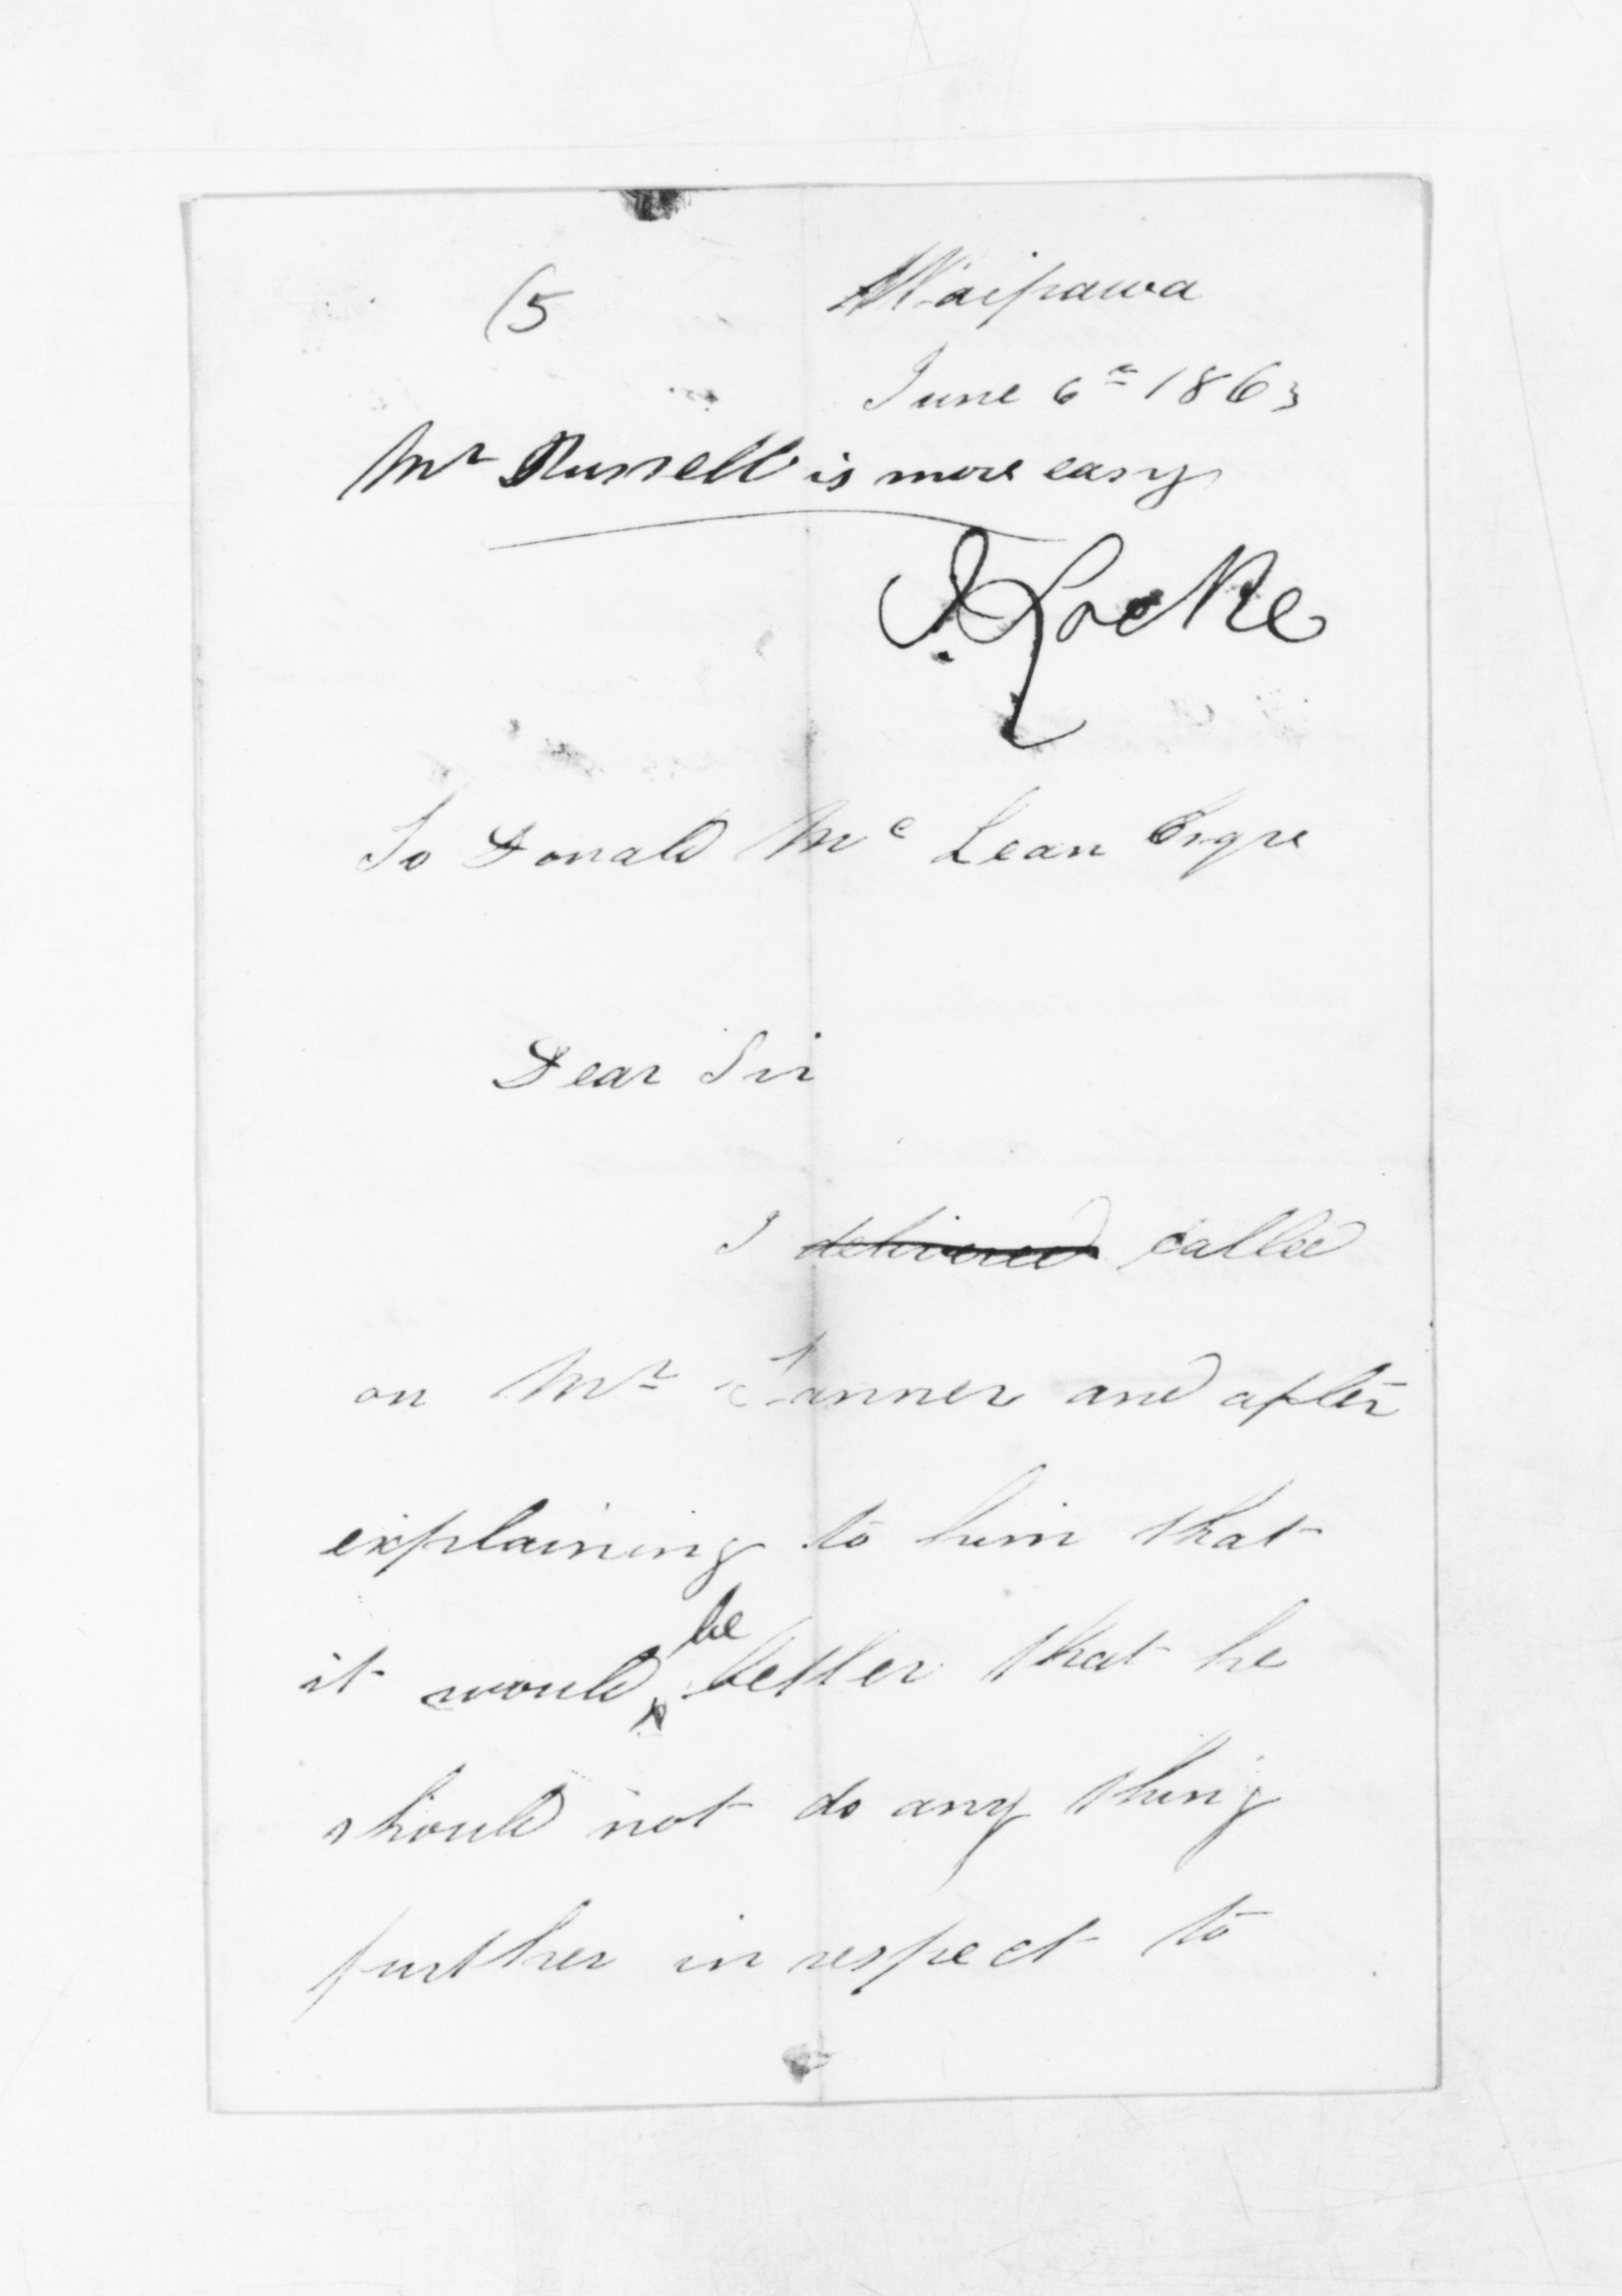 (5
Waipawa
June 6th 1863
Mr Russell is more easy
S. Locke
To Donald Mc Lean Esqre
Dear Sir
I delivered called
on Mr Tanner and after
explaining to him that
be
it would better that he
should not do any thing
further in respect to